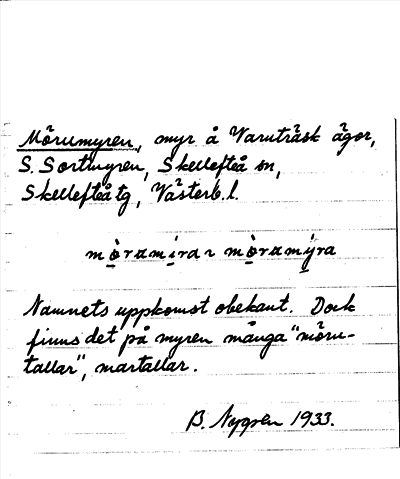 Mörumyren, myr å Varuträsk ägor,
S. Sortmyren, Skellefteå sn,
Skellefteå tg, Västerb. l.
mòramira 2 mòramýra
Namnets uppkomst obekant. Dock
finns det på myren många "möru-
tallar", martallar.
B. Nygren 1933.